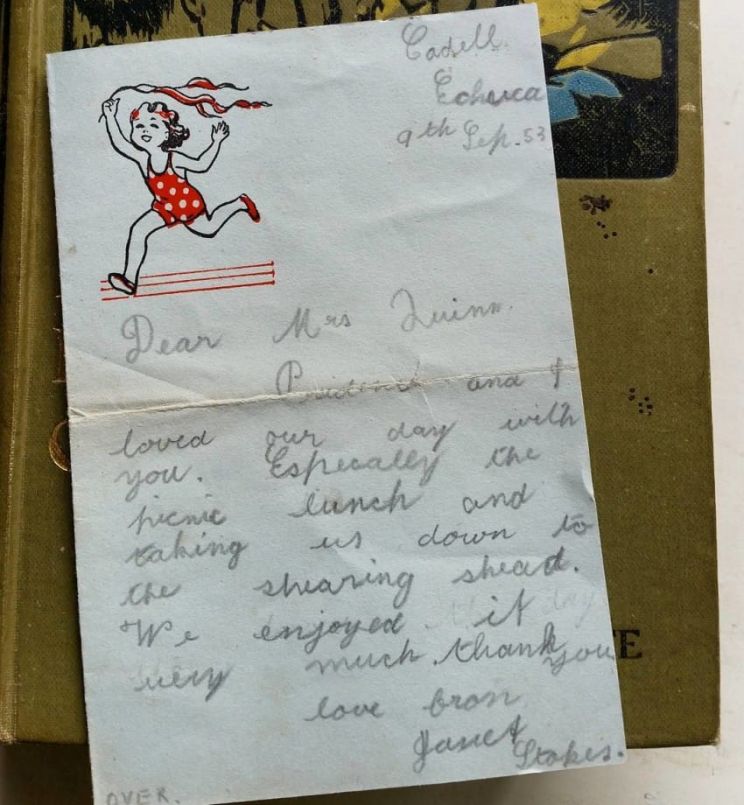 Cadell.
Echuca
9th Sep. 53
Dear Mrs Quinn.
Prudence and I
loved our day with
you. Especally the
picnic lunch and
taking us down to
the shearing shead.
We enjoyed it
very much. thank you
love from
Janet
Stokes.
OVER.
TE